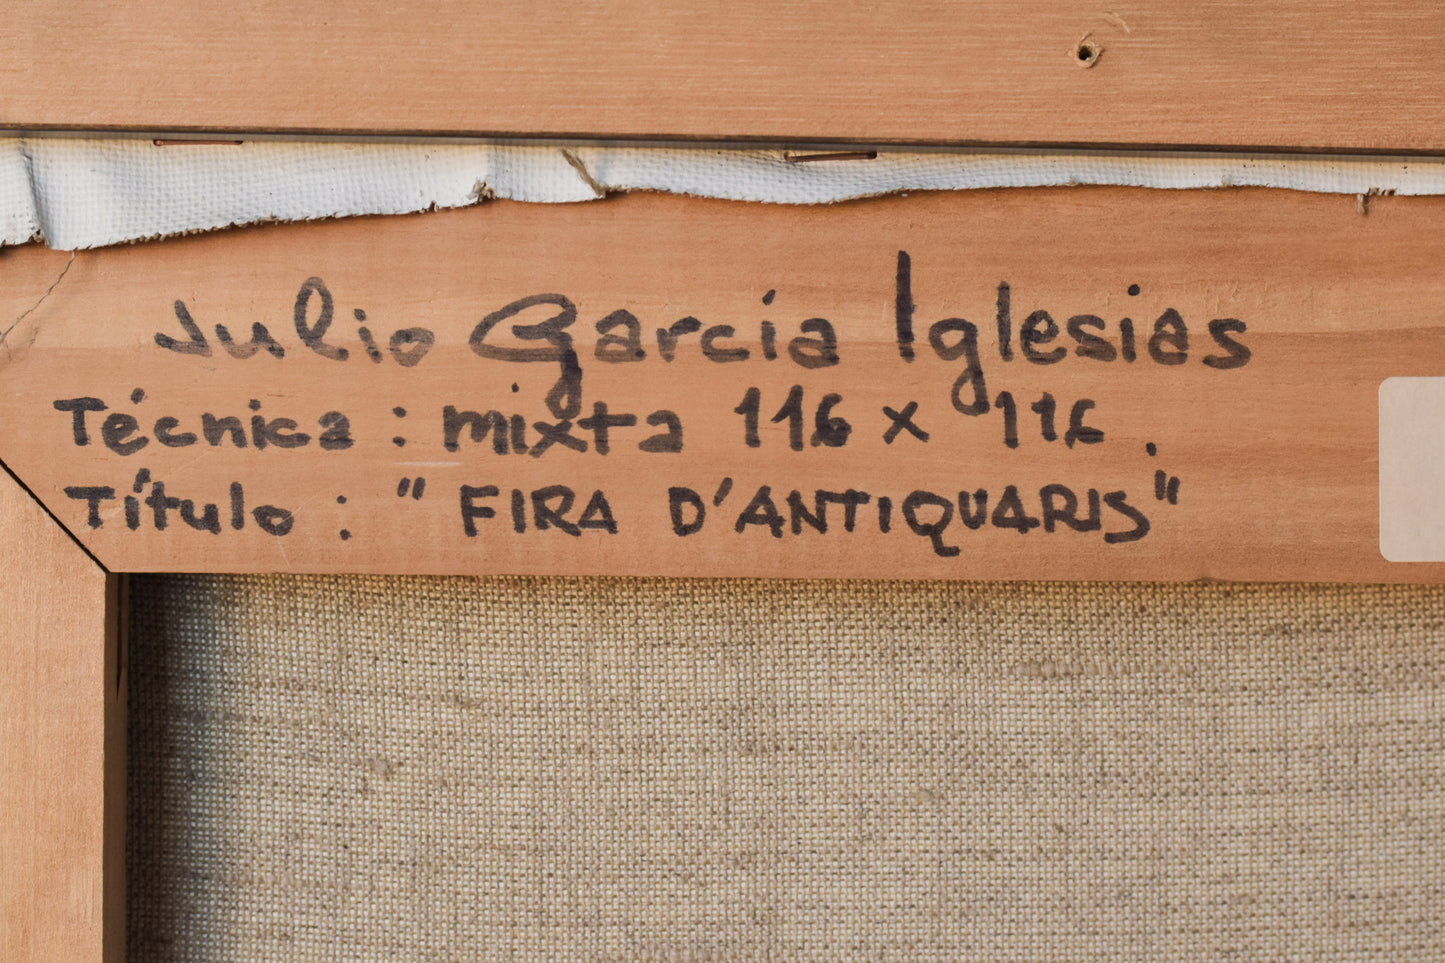 Julio García Iglesias
Técnica : mixta 116 x 116.
Título : "FIRA D'ANTIQUARIS"